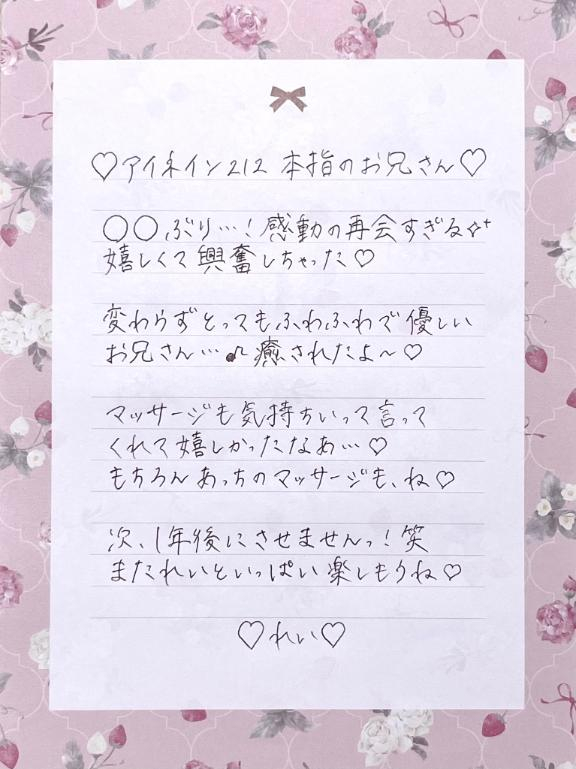 ♡アイネイン212 本指のお兄さん♡
○○ぶり…！感動の再会すぎる✧⁺
嬉しくて興奮しちゃった♡
変わらずとってもふわふわで優しい
お兄さん…♫癒されたよ〜♡
マッサージも気持ちいって言って
くれて嬉しかったなあ…♡
もちろんあっちのマッサージも、ね♡
次、1年後にさせませんっ！笑
またれいといっぱい楽しもうね♡
♡れい♡